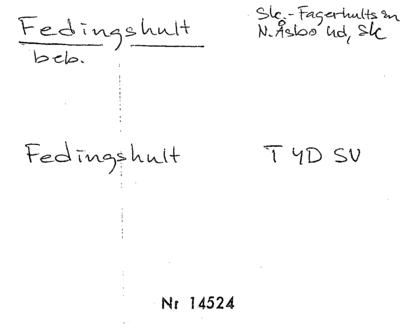 Fedingshult
beb.
Sk.-Fagerhults sn
N. Åsbo hd, Sk
Fedingshult
T 4D SV
Nr 14524